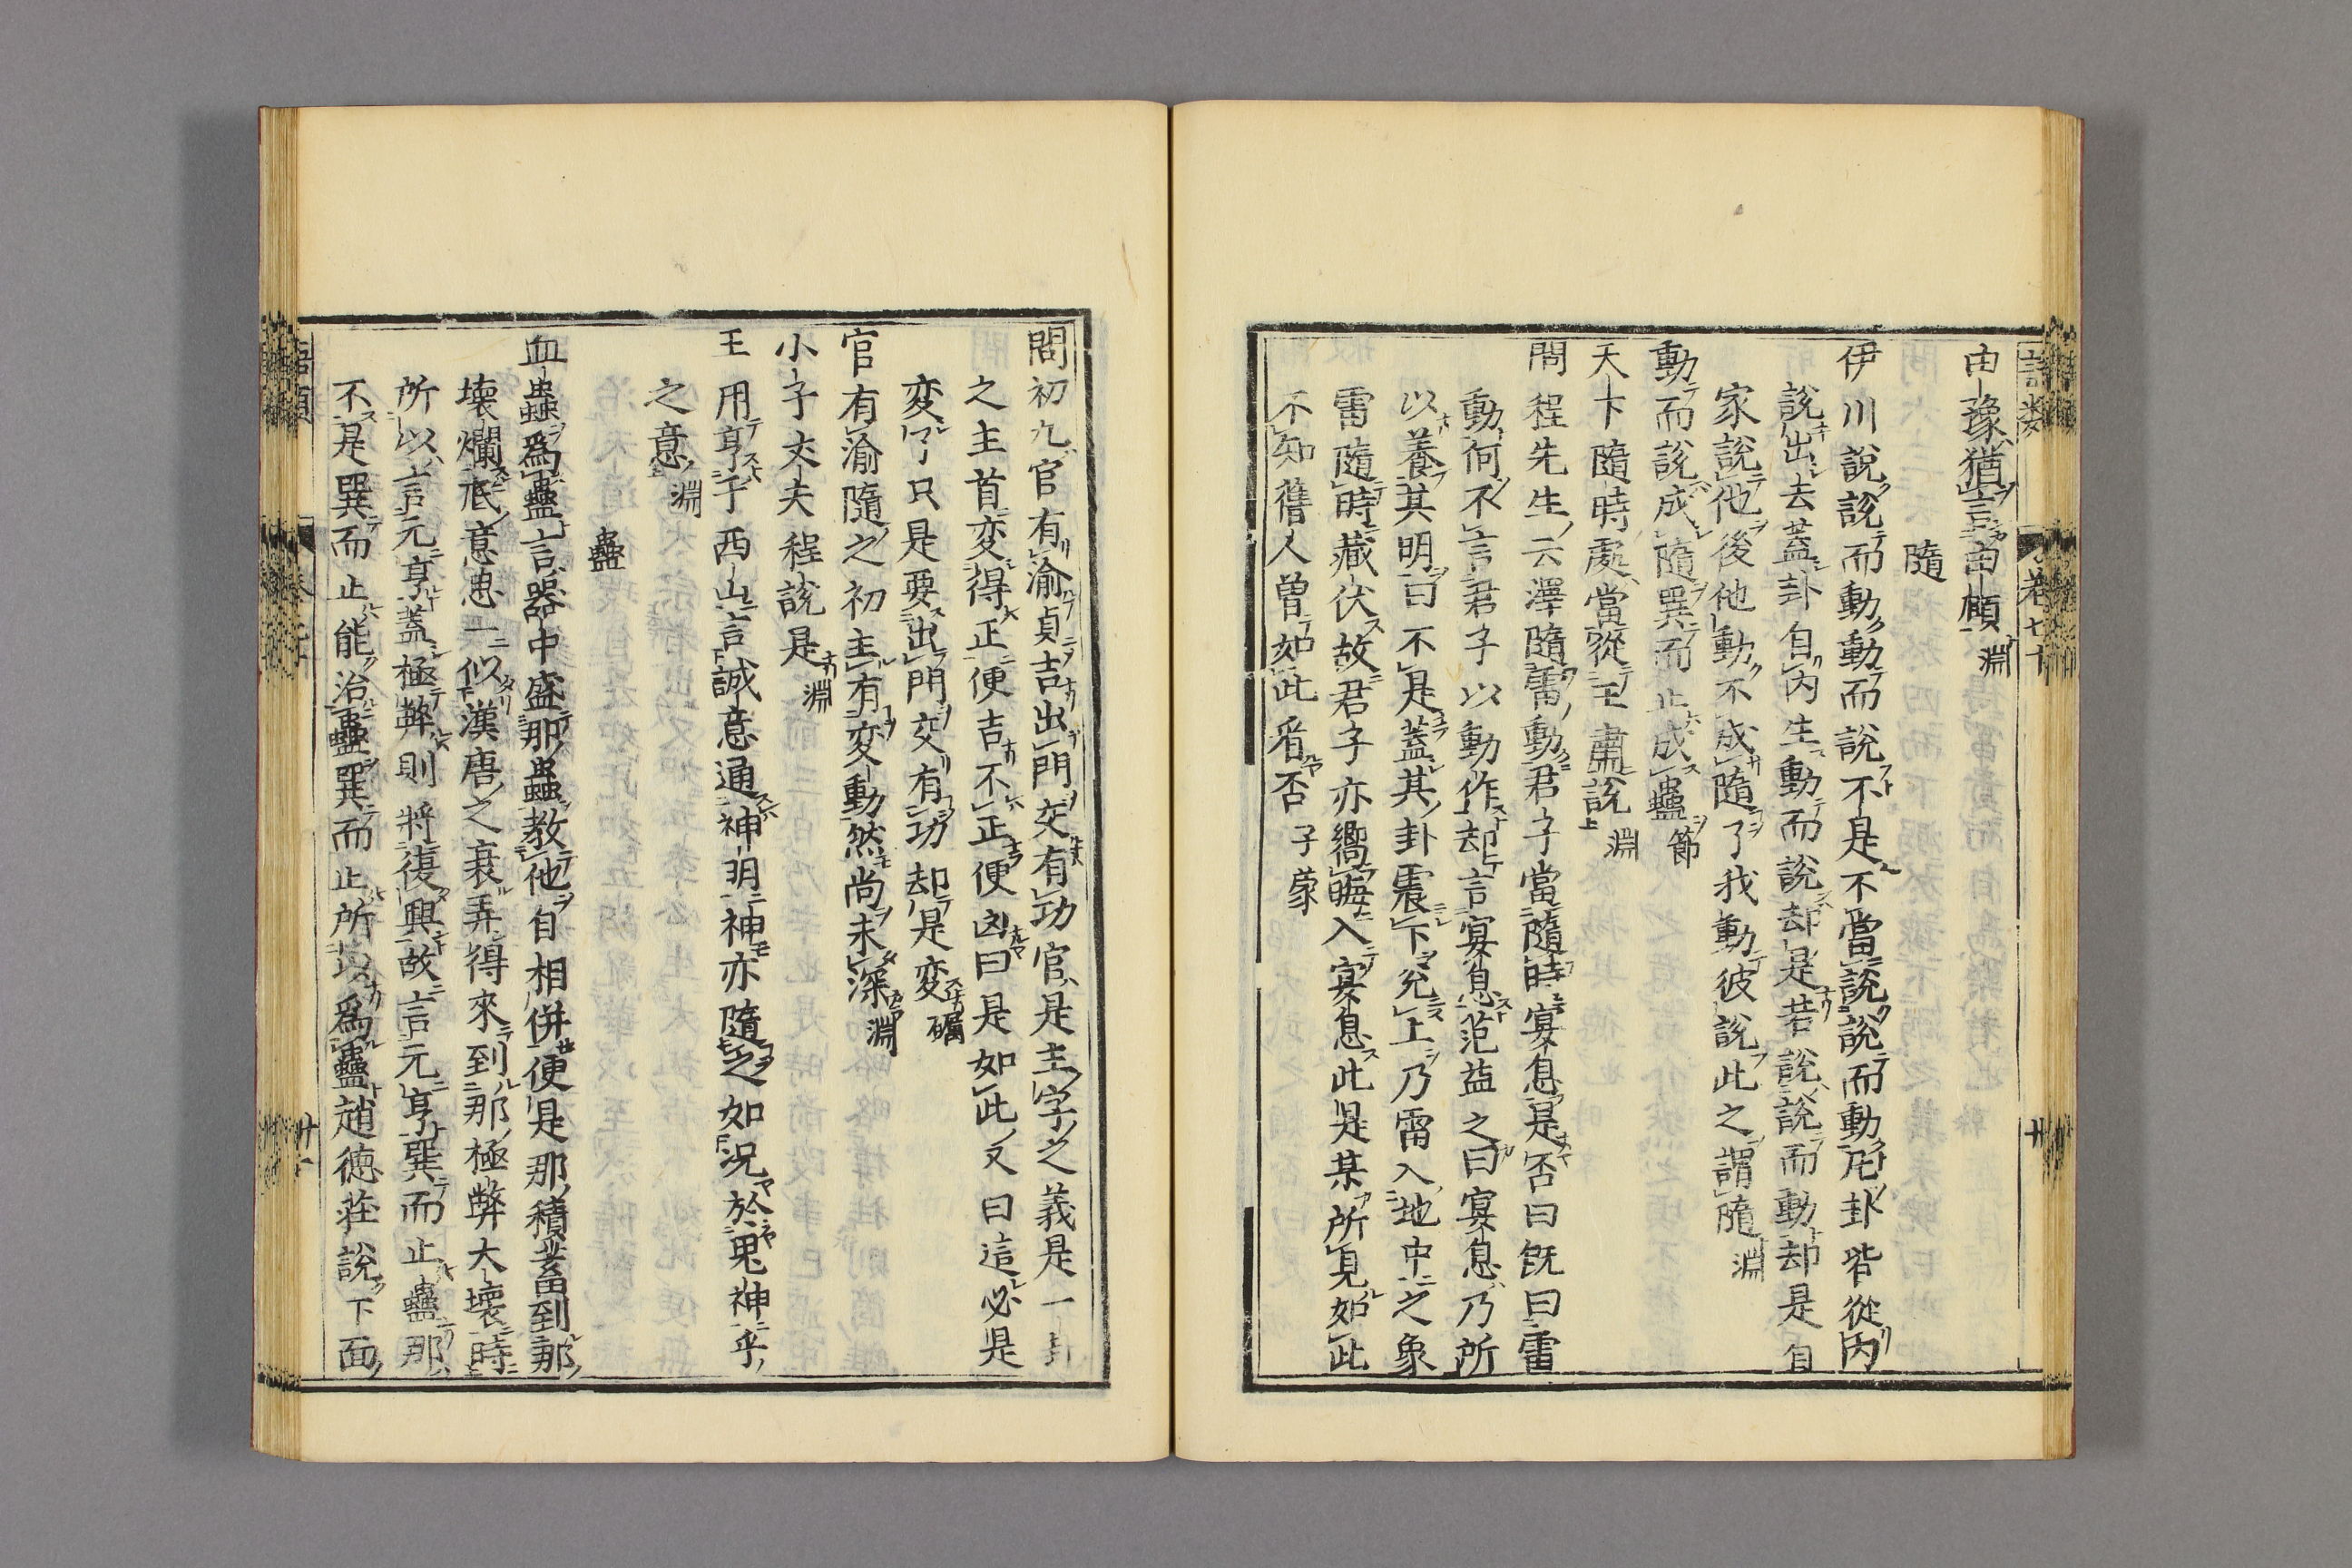 語類
卷七十
廿
由豫猶言由頤 淵
隨
伊川說說而動動而說不是不當說說而動凡卦皆從內
說出去蓋卦自內生動而說却是若說說而動却是自
家說他後他動不成隨了我動彼說此之謂隨 淵
動而說成隨巽而止成蠱 節
天下隨時處當從王肅說 淵
問程先生云澤隨雷動君子當隨時宴息是否曰既曰雷
動何不言君子以動作却言宴息范益之曰宴息乃所
以養其明曰不是蓋其卦震下兌上乃雷入地中之象
雷隨時藏伏故君子亦嚮晦入宴息此是某所見如此
不知舊人曾如此看否 子蒙
問初九官有渝貞吉出門交有功官是主字之義是一卦
之主首変得正便吉不正便凶曰是如此又曰這必是
変了只是要出門交有功却是変 礪
官有渝隨之初主有変動然尚未深 淵
小子丈夫程說是 淵
王用亨于西山言誠意通神明神亦隨之如況於鬼神乎
之意 淵
蠱
皿蟲爲蠱言器中盛那蟲教他自相併便是那積蓄到那
壞爛底意思一似漢唐之衰弄得來到那極弊大壞時
所以言元亨蓋極弊則將復興故言元亨巽而止蠱那
不是巽而止能治蠱巽而止所以爲蠱趙德莊說下面
語類
廿一